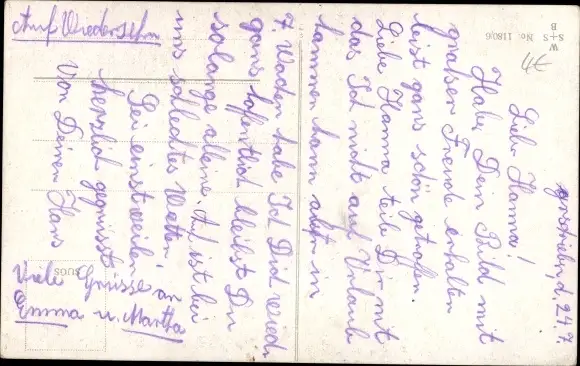 geschrieben d. 24.7.
Liebe Hanna!
Habe Dein Bild mit
grosser Freude erhalten
bist ganz schön getroffen.
Liebe Hanna teile Dir mit
das Ich nicht auf Urlaub
kommen kann erst in
7. Wochen habe Ich Dich wieder
ganz hoffentlich bleibst Du
solange alleine. Auf ist bei
uns schlechtes Wetter.
Sei einstweilen
herzlich gegrüsst
Von Deinen Hans
Auf Wiedersehn
Viele Grüsse an
Emma u. Martha
W
S+S No 1180/6
B
4€